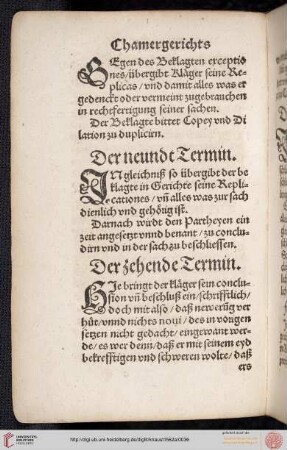 Chamergerichts
GEgen des Beklagten exceptio
nes/übergibt Kläger seine Re-
plicas/vnd damit alles was er
gedenckt oder vermeint zugebrauchen
in rechtfertigung seiner sachen.
Der Beklagte bittet Copey vnd Di
lation zu duplicirn.
Der neundt Termin.
INgleichniß so übergibt der be
klagte in Gerichte seine Repli-
cationes/vn̄ alles was zur sach
dienlich vnd gehörig ist.
Darnach wirdt den Partheyen ein
zeit angesetzt vnnd benant/zu conclu-
dirn vnd in der sach zu beschliessen.
Der zehende Termin.
HJe bringt der kläger sein conclu-
sion vn̄ beschluß ein/schrifftlich/
doch mit also/daß
hüt/vnnd nichts noui/des in vorigen
setzen nicht gedacht/eingewant wer-
de/es wer denn/daß er mit seinem eyd
bekrefftigen vnd schweren wolte/daß
ers
http://digi.ub.uni-heidelberg.de/diglit/